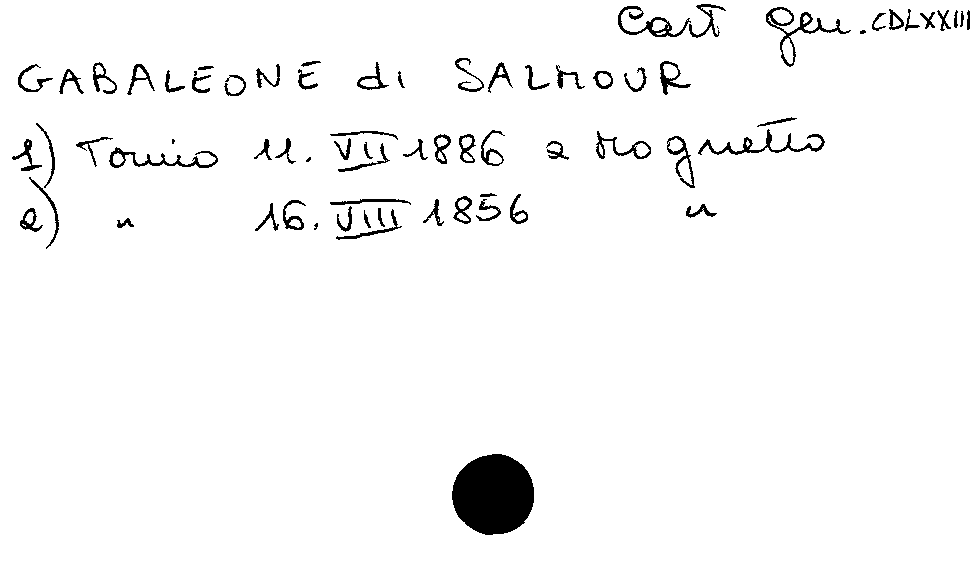 Cart gen. CDLXXIII
GABALEONE di SALMOUR
1) Torino 11. VII 1886 a Mognetto
2) " 16. VIII 1856 "